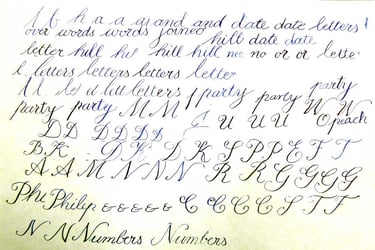 h a a and and date date letters
over words words joined hill date date
letter hill hill hill no or or lette
letters letters letters letter
letters party party party
party party M M U U U W W O peach
D D D D D D
B K D K D K S P P E T T
A A M N N N R R G G G G
Phi Philip & & & & & C C C C S T T
N N Numbers Numbers